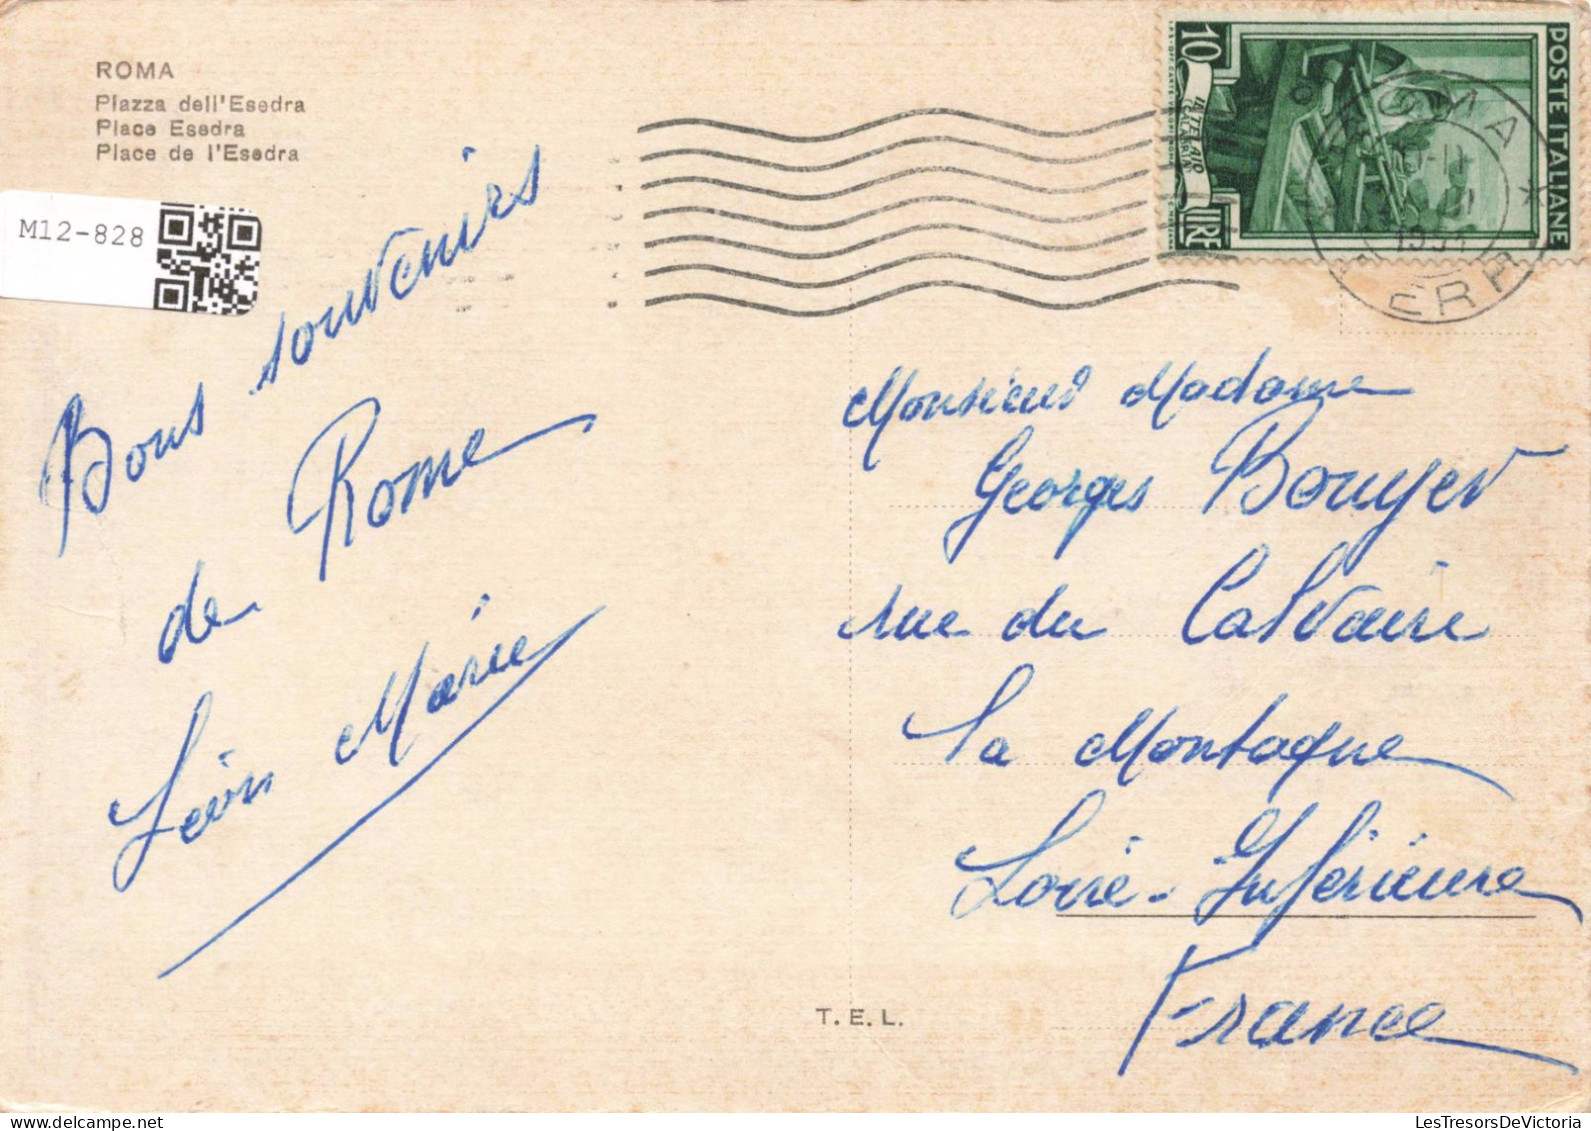 ROMA
Piazza dell'Esedra
Place Esedra
Place de l'Esedra
M12-828
Bons souvenirs
de Rome
Léon Marie
10
LIRE
IL TELAIO
POSTE ITALIANE
ROMA
FERR
Monsieur Madame
Georges Bouyer
rue du Calvaire
La Montagne
Loire-Inférieure
France
T. E. L.
LesTresorsDeVictoria